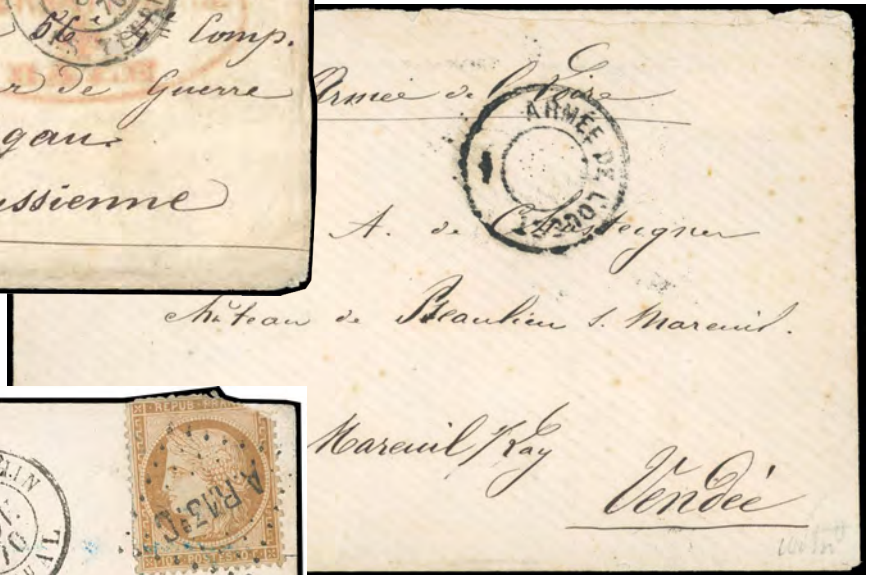 70
56 Comp.
de Guerre
gau
ussienne
Armée de l'Loire
ARMÉE DE L'OUEST
A. de Chasteigner
Château de Beaulieu s. Mareuil.
Mareuil/Lay
Vendée
REPUB FRANC
A.R.13.C
10 C POSTES 10 C
70